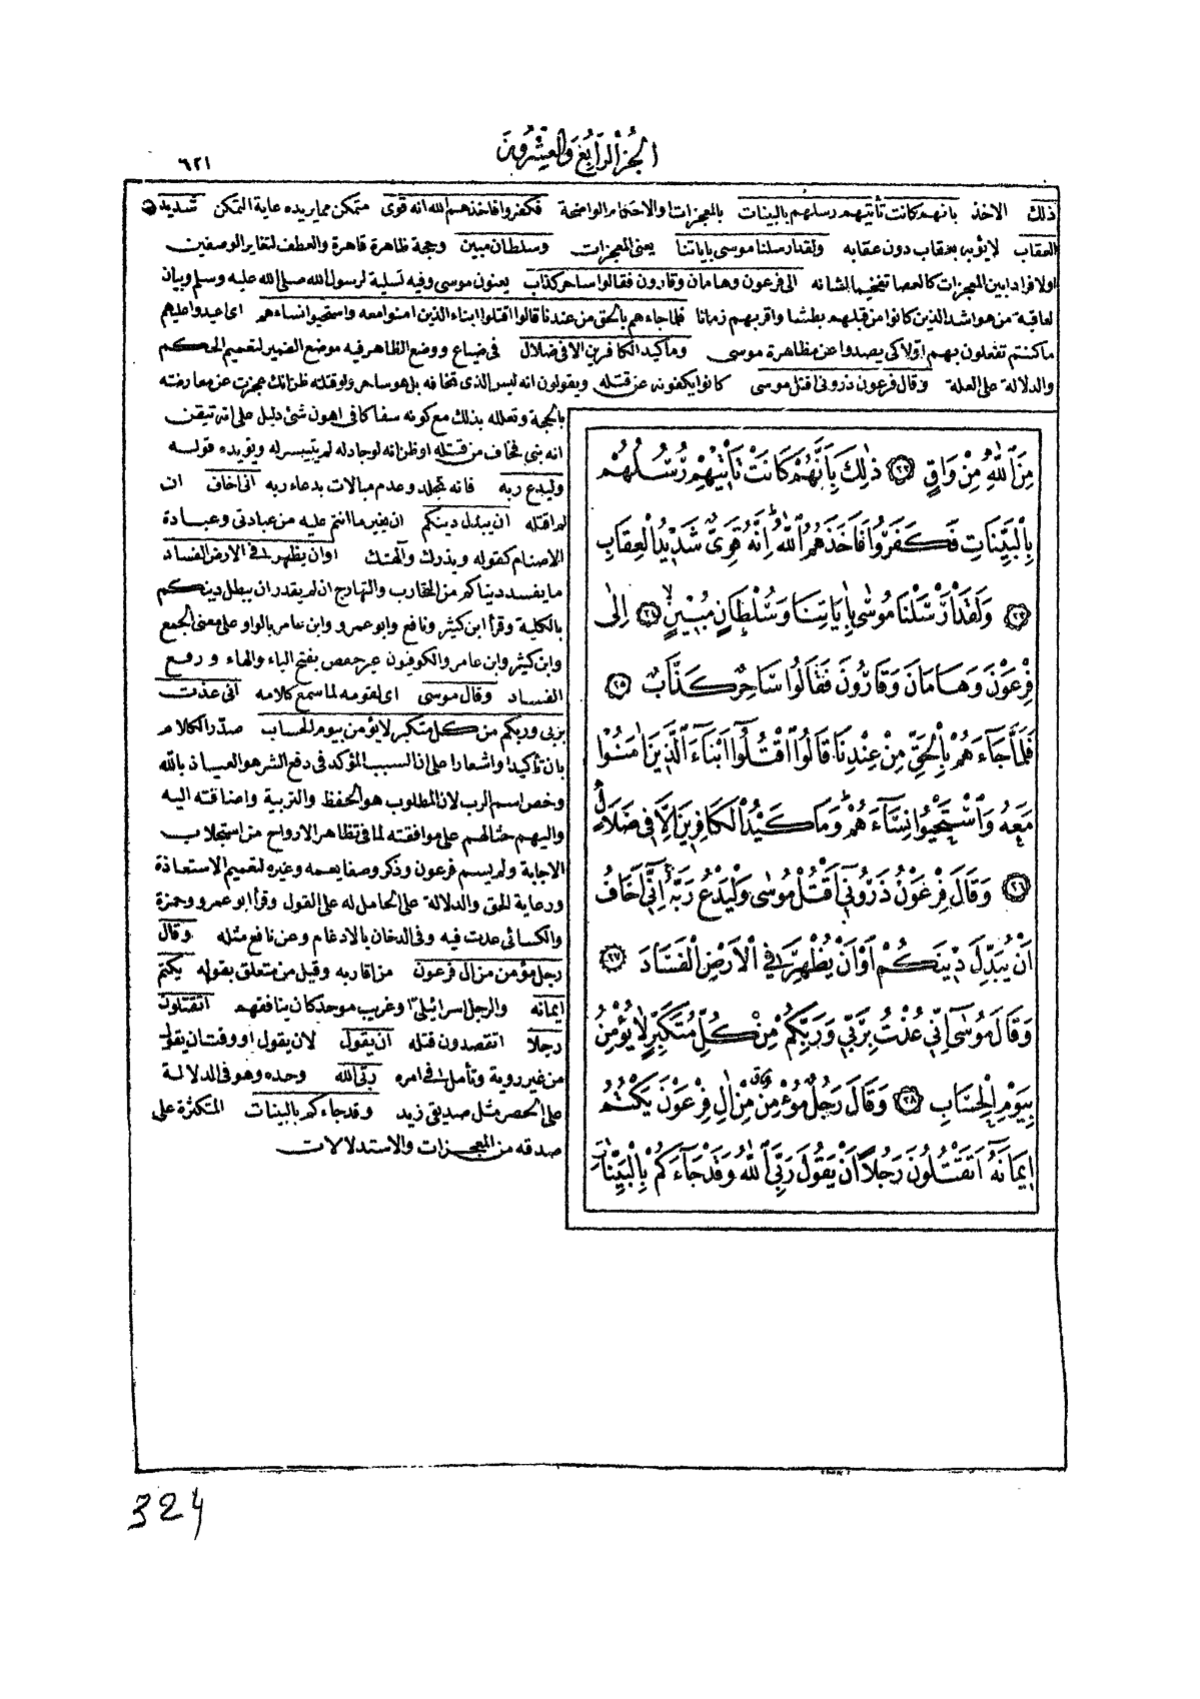 الجزء الرابع والعشرون
٦٢١
ذلك الاخذ بانهم كانت تأتيهم رسلهم بالبينات بالمعجزات او الاحكام الواضحة فكفروا فاخذهم الله انه قوى متمكن مما يريده غاية التمكن شديد
العقاب لا يؤبه بعقاب دون عقابه ولقد ارسلنا موسى باياتنا يعنى المعجزات وسلطان مبين وحجة ظاهرة قاهرة والعطف لتغاير الوصفين
اولا فراد بين المعجزات كالعصا تفخيما لشانه الى فرعون وهامان وقارون فقالوا ساحر كذاب يعنون موسى وفيه تسلية لرسول الله صلى الله عليه وسلم وبيان
لعاقبة من هو اشد الذين كانوا من قبلهم بطشا واقربهم زمانا فلما جاءهم بالحق من عندنا قالوا اقتلوا ابناء الذين امنوا معه واستحيوا نساءهم اى اعيدوا عليهم
ماكنتم تفعلون بهم اولا كى يصدوا عن مظاهرة موسى وما كيد الكافرين الا فى ضلال فى ضياع ووضع الظاهر فيه موضع الضمير لتعميم الحكم
والدلالة على العلة وقال فرعون ذرونى اقتل موسى كانوا يكفونه عن قتله ويقولون انه ليس الذى تخافه بل هو ساحر ولو قتلته ظن انك عجزت عن معارضته
بالحجة وتعلله بذلك مع كونه سفاكا فى اهون شئ دليل على انه تيقن
انه نبى فخاف من قتله او ظن انه لو جادله لم يتيسر له ويؤيده قوله
وليدع ربه فانه تجلد وعدم مبالات بدعاء ربه انى اخاف ان
لم اقتله ان يبدل دينكم ان يغير ما انتم عليه من عبادتى وعبادة
الاصنام كقوله ويذرك والهتك او ان يظهر فى الارض الفساد
ما يفسد دنياكم من التحارب والتهارج ان لم يقدر ان يبطل دينكم
بالكلية وقرأ ابن كثير ونافع وابو عمرو وابن عامر بالواو على معنى الجمع
وابن كثير وابن عامر والكوفيون غير حفص بفتح الياء والهاء ورفع
الفساد وقال موسى اى لقومه لما سمع كلامه انى عذت
بربى وربكم من كل متكبر لا يؤمن بيوم الحساب صدر الكلام
بان تأكيدا واشعارا على ان السبب المؤكد فى دفع الشر هو العياذ بالله
وخص اسم الرب لان المطلوب هو الحفظ والتربية واضافته اليه
واليهم حثا لهم على موافقته لما فى تظاهر الارواح من استجلاب
الاجابة ولم يسم فرعون وذكر وصفا يعمه وغيره لتعميم الاستعاذة
ورعاية الحق والدلالة على الحامل له على القول وقرأ ابو عمرو وحمزة
والكسائى عدت فيه وفى الدخان بالادغام وعن نافع مثله وقال
رجل مؤمن من ال فرعون من اقاربه وقيل من متعلق بقوله يكتم
ايمانه والرجل اسرائيلى او غريب موحد كان ينافقهم اتقتلون
رجلا اتقصدون قتله ان يقول لان يقول او وقت ان يقول
من غير روية وتأمل فى امره ربى الله وحده وهو فى الدلالة
على الحصر مثل صديقى زيد وقد جاءكم بالبينات المتكثرة على
صدقه من المعجزات والاستدلالات
مِنَ اللّٰهِ مِنْ وَاقٍ ﴿٢٢﴾ ذٰلِكَ بِاَنَّهُمْ كَانَتْ تَأْتِيهِمْ رُسُلُهُمْ
بِالْبَيِّنَاتِ فَكَفَرُوا فَاَخَذَهُمُ اللّٰهُ اِنَّهُ قَوِىٌّ شَدِيدُ الْعِقَابِ
﴿٢٣﴾ وَلَقَدْ اَرْسَلْنَا مُوسٰى بِاٰيَاتِنَا وَسُلْطَانٍ مُبِينٍ ﴿٢٤﴾ اِلٰى
فِرْعَوْنَ وَهَامَانَ وَقَارُونَ فَقَالُوا سَاحِرٌ كَذَّابٌ ﴿٢٥﴾
فَلَمَّا جَاءَهُمْ بِالْحَقِّ مِنْ عِنْدِنَا قَالُوا اقْتُلُوا اَبْنَاءَ الَّذِينَ اٰمَنُوا
مَعَهُ وَاسْتَحْيُوا نِسَاءَهُمْ وَمَا كَيْدُ الْكَافِرِينَ اِلَّا فِى ضَلَالٍ
﴿٢٦﴾ وَقَالَ فِرْعَوْنُ ذَرُونِى اَقْتُلْ مُوسٰى وَلْيَدْعُ رَبَّهُ اِنِّى اَخَافُ
اَنْ يُبَدِّلَ دِينَكُمْ اَوْ اَنْ يُظْهِرَ فِى الْاَرْضِ الْفَسَادَ ﴿٢٧﴾
وَقَالَ مُوسٰى اِنِّى عُذْتُ بِرَبِّى وَرَبِّكُمْ مِنْ كُلِّ مُتَكَبِّرٍ لَا يُؤْمِنُ
بِيَوْمِ الْحِسَابِ ﴿٢٨﴾ وَقَالَ رَجُلٌ مُؤْمِنٌ مِنْ اٰلِ فِرْعَوْنَ يَكْتُمُ
اِيمَانَهُ اَتَقْتُلُونَ رَجُلًا اَنْ يَقُولَ رَبِّىَ اللّٰهُ وَقَدْ جَاءَكُمْ بِالْبَيِّنَاتِ
324